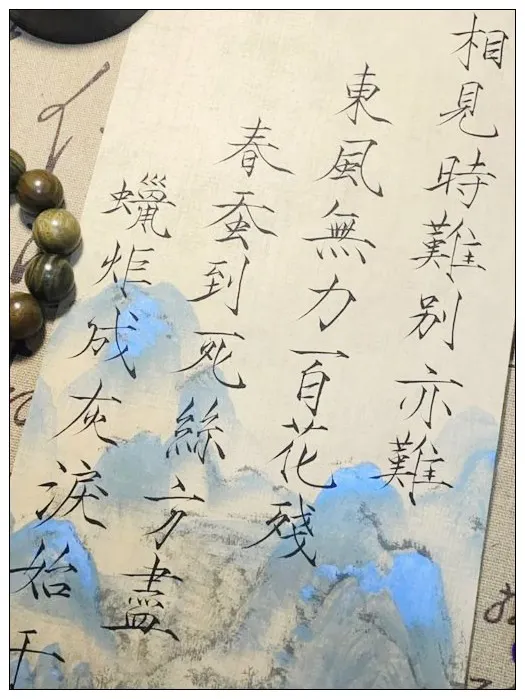 相見時難別亦難
東風無力百花殘
春蚕到死絲方盡
蠟炬成灰淚始干